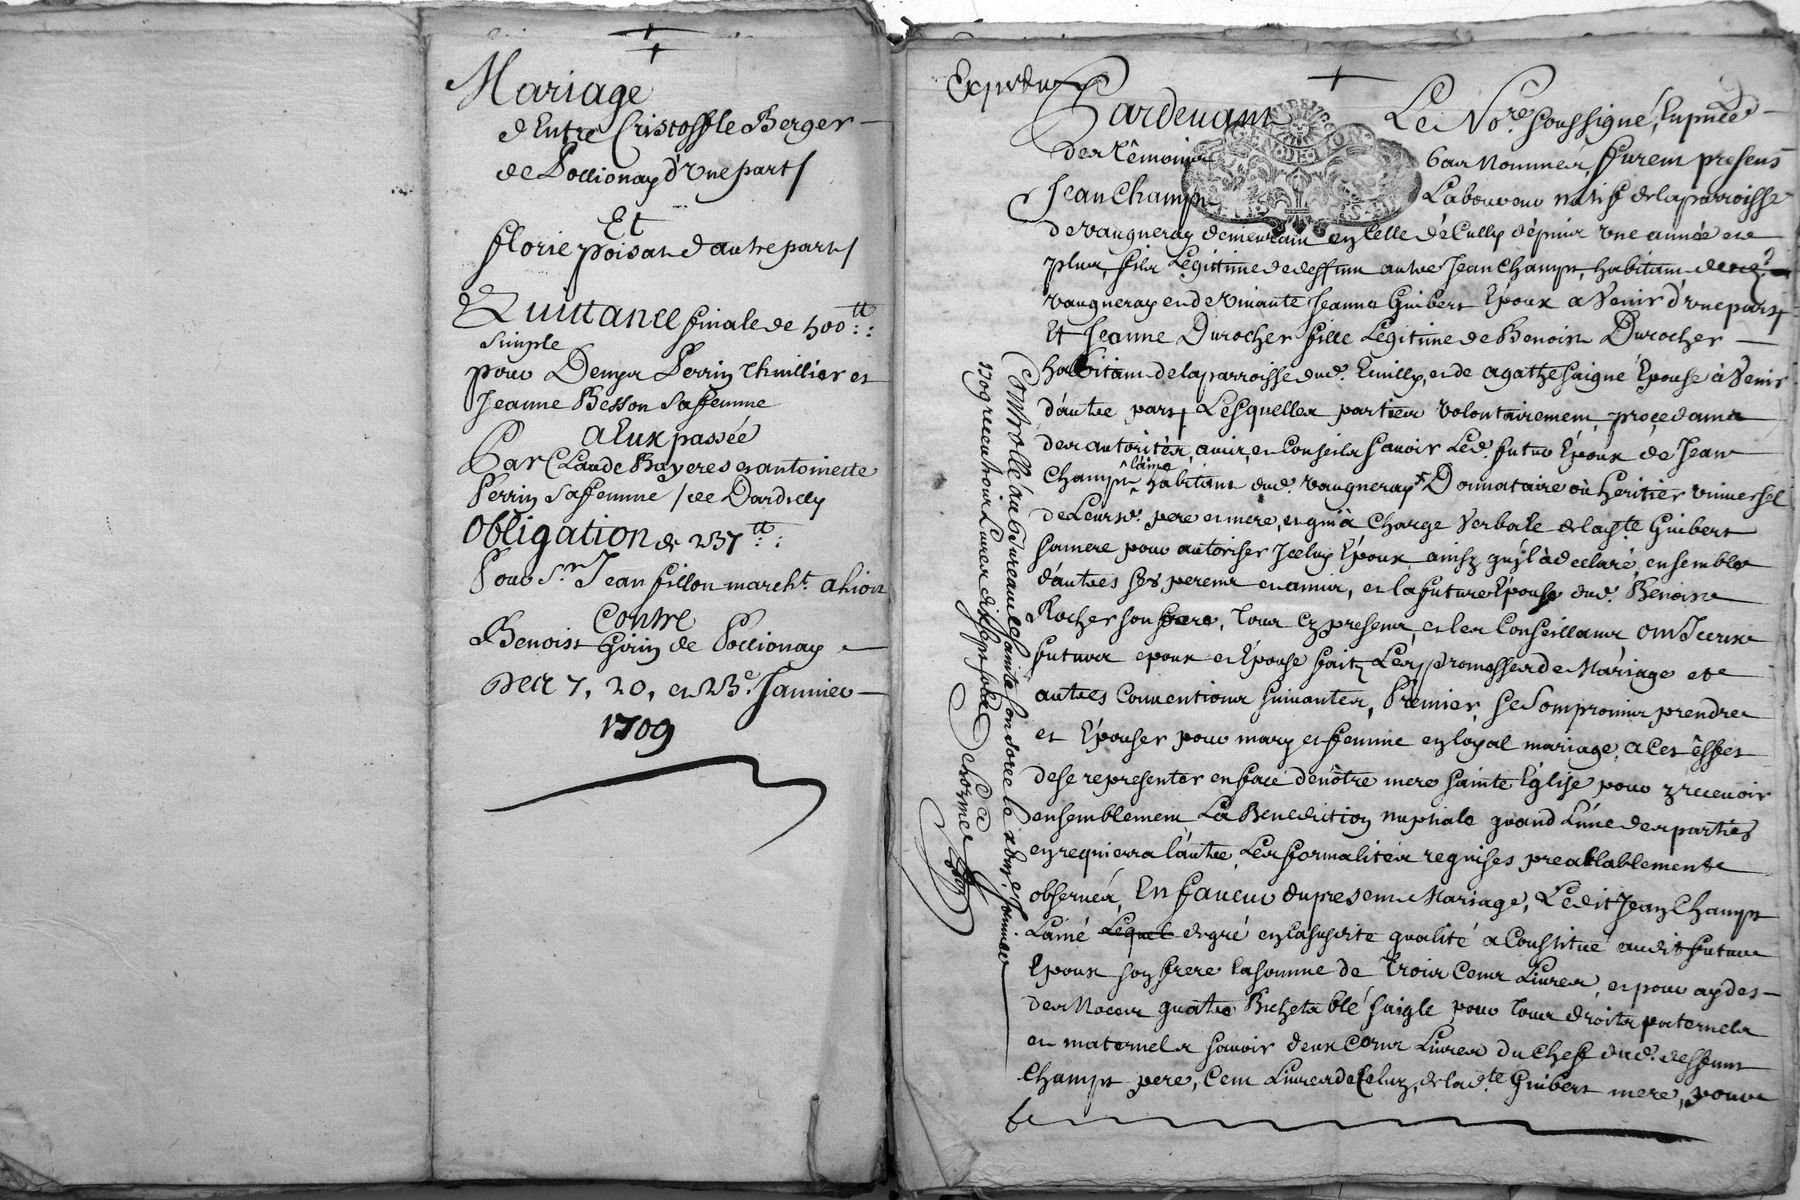 Mariage
d'Entre Cristoffle Berger
de Pollionay d'Une part /
Et
florie poisat d'autre part /
Quittance finale de 500 tt
simple
pour Denys Perrin thuillier et
Jeanne Besson sa femme
a Eux passée
Par Claude Bayeres et antoinette
Perrin sa femme / de Dardilly
Obligation de 237 tt
Pour Sr. Jean fillon march.t a lion
Contre
Benoist Girin de Pollionay
Des 7, 20, et 23e. Janvier
1709
Expédié
Pardevant Le No.re soussigné, En p̃nce
des têmoins bas nommes, furent presens
Jean Champt Laboureur natif de la parroisse
de vaugneray demeurant en Celle de Cully dépuis une année et
plus, fils Légittime de deffunt autre Jean Champt, habitant de
vaugneray et de vivante Jeanne Guibert Epoux a Venir d'une part
Et Jeanne Durocher fille Légitime de Benoist Durocher
habitant de la parroisse dud. et de agathe Epouse à Venir
d'autre part, Lesquelles parties volontairement, procedants
des autorités, avis, et Conseils savoir Led. futur Epoux de Jean
Champt l'aîné habitant dud. vaugneray Donnataire où heritier universel
de Leursd. pere et mere, et qui à Charge Verbale de lad.te Guibert
sa mere pour autoriser Jceluy Epoux ainsy qu'il à declaré, ensemble
d'autres ses parens et amis, et la future Epouse dud. Benoist
Rocher son pere, tous cy presens, et les Conseillant ont Jceux
futurs epoux et Epouse fait Les promesses de Mariage et
autres Conventions suivantes, Premier, se sont promis prendre
et Epouser pour mary et femme en loyal mariage, a Cet êffet
de se representer en face de nôtre mere sainte Eglise pour y recevoir
ensemblement La Benediction nuptiale quand L'une des parties
en requierra l'autre, Les formalités requises preallablement
observées, En faveur du present Mariage, Ledit Jean Champt
L'aîné Lequel de gré en la susdite qualité a Constitué audit futur
Epoux son frere la somme de trois Cens Livres, et pour aydes
des Noces quatre Bichets blé saigle pour tous droits paternels
et maternels savoir deux Cens Livres du Chef dud. deffunt
Champt pere, Cent Livres de Celuy de lad.te Guibert mere, pour
Controllé au Bureau de sainte Consorce le Janvier
1709 receu trois Livres dix sept sols